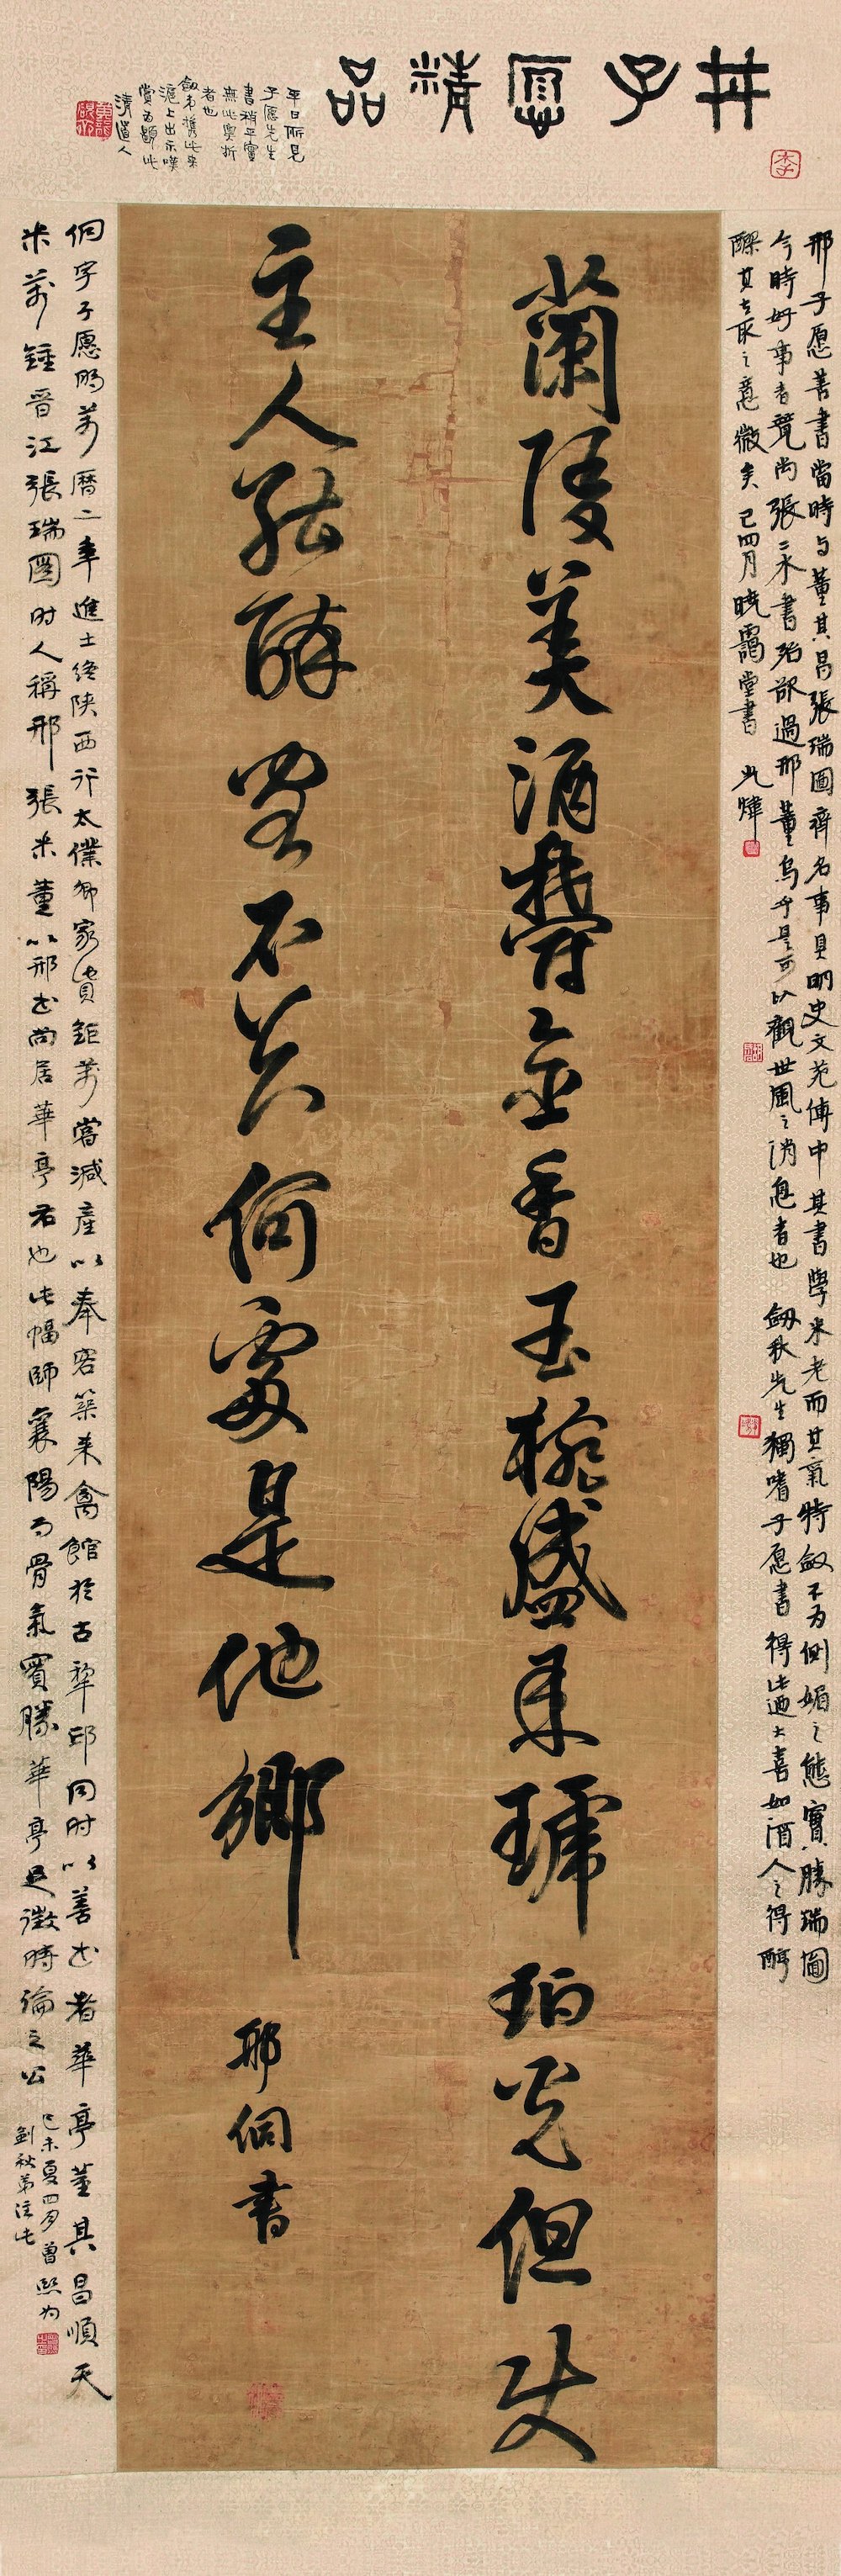 邢子愿精品
平日所見
子愿先生
書稍平實
無此奧折
者也
劍秋攜此來
滬上出示嘆
賞為題此
清道人
蘭陵美酒鬱金香玉椀盛來琥珀光但使
主人能醉客不知何處是他鄉
邢侗書
邢子愿善書當時与董其昌張瑞圖齊名事具明史文苑傳中其書學米老而其氣特斂不为側媚之態實勝瑞圖
今時好事者覽尚張二水書殆欲過邢董烏乎是可以觀世風之消息者也 劍秋先生獨嗜子愿書得此過大喜如酒人之得醇
醪其去取之意微矣 己四月曉靄堂書 光煒
侗字子愿明萬曆二年進士終陝西行太僕卿家貲鉅萬嘗減產以奉客築来禽館於古犂邱同时以善书者華亭董其昌順天
米萬鍾晋江張瑞圖时人稱邢張米董以邢书尚居華亭右也此幅師襄陽而骨氣實勝華亭足徵時論之公
己未夏四月曾熙为
劍秋弟注此